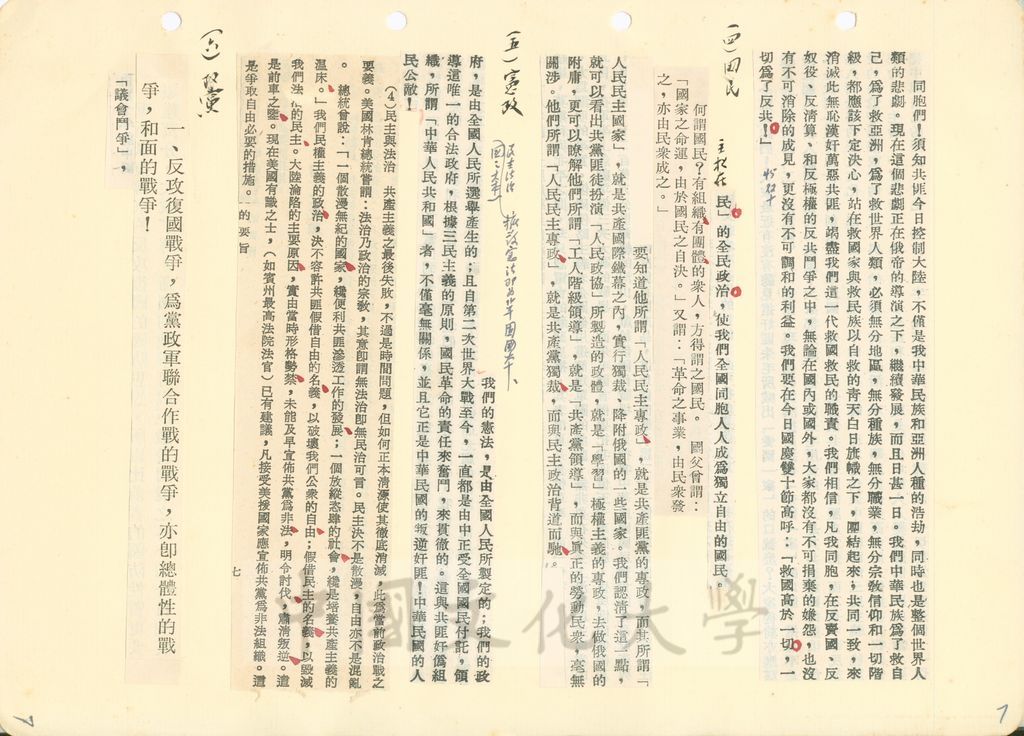 同胞們！須知共匪今日控制大陸，不僅是我中華民族和亞洲人種的浩劫，同時也是整個世界人
類的悲劇。現在這個悲劇正在俄帝的導演之下，繼續發展，而且日甚一日。我們中華民族爲了救自
己，爲了救亞洲，爲了救世界人類，必須無分地區，無分種族，無分職業，無分宗敎信仰和一切階
級，都應該下定決心，站在救國家與救民族以自救的靑天白日旗幟之下，團結起來，共同一致，來
消滅此無恥漢奸萬惡共匪，竭盡我們這一代救國救民的職責。我們相信，凡我同胞，在反賣國、反
奴役、反清算、和反極權的反共鬥爭之中，無論在國內或國外，大家都沒有不可捐棄的嫌怨，也沒
有不可消除的成見，更沒有不可調和的利益。我們要在今日國慶雙十節高呼：「救國高於一切，一
切爲了反共！
民」的全民政治，使我們全國同胞人人成爲獨立自由的國民。
(四)國民
何謂國民？有組織有團體的衆人，方得謂之國民。　國父曾謂：
「國家之命運，由於國民之自決。」又謂：「革命之事業，由民衆發
之，亦由民衆成之。」
要知道他所謂「人民民主專政」，就是共產匪黨的專政，而其所謂「
人民民主國家」，就是共產國際鐵幕之內，實行獨裁、降附俄國的一些國家。我們認清了這一點，
就可以看出共黨匪徒扮演「人民政協」所製造的政體，就是「學習」極權主義的專政，去做俄國的
附庸，更可以瞭解他們所謂「工人階級領導」，就是「共產黨領導」，而與眞正的勞動民衆，毫無
關涉。他們所謂「人民民主專政」，就是共產黨獨裁，而與民主政治背道而馳。
(五)憲政
我們的憲法，是由全國人民所製定的；我們的政
府，是由全國人民所選舉產生的；且自第二次世界大戰至今，一直都是由中正受全國國民付託，領
導這唯一的合法政府，根據三民主義的原則，國民革命的責任來奮鬥，來貫徹的。這與共匪奸僞組
織，所謂「中華人民共和國」者，不僅毫無關係，並且它正是中華民國的叛逆奸匪！中華民國的人
民公敵！
(4)民主與法治　共產主義之最後失敗，不過是時間問題，但如何正本清源使其徹底消滅，此爲當前政治戰之
要義。美國林肯總統嘗謂：法治乃政治的宗敎，其意卽謂無法治卽無民治可言。民主決不是散漫，自由亦不是混亂
。　總統曾說：「一個散漫無紀的國家，纔便利共匪滲透工作的發展；一個放縱恣肆的社會，纔是培養共產主義的
溫床。」我們民權主義的政治，決不容許共匪假借自由的名義，以破壞我們公衆的自由；假借民主的名義，以毀滅
我們法治的民主。大陸淪陷的主要原因，實由當時形格勢禁，未能及早宣佈共黨爲非法，明令討伐，肅清叛逆。這
是前車之鑒。現在美國有識之士，（如賓州最高法院法官）已有建議，凡接受美援國家應宣佈共黨爲非法組織。這
是爭取自由必要的措施。
的要旨
七
一、反攻復國戰爭，爲黨政軍聯合作戰的戰爭，亦卽總體性的戰
爭，和面的戰爭！
「議會鬥爭」，
中國文化大學
7